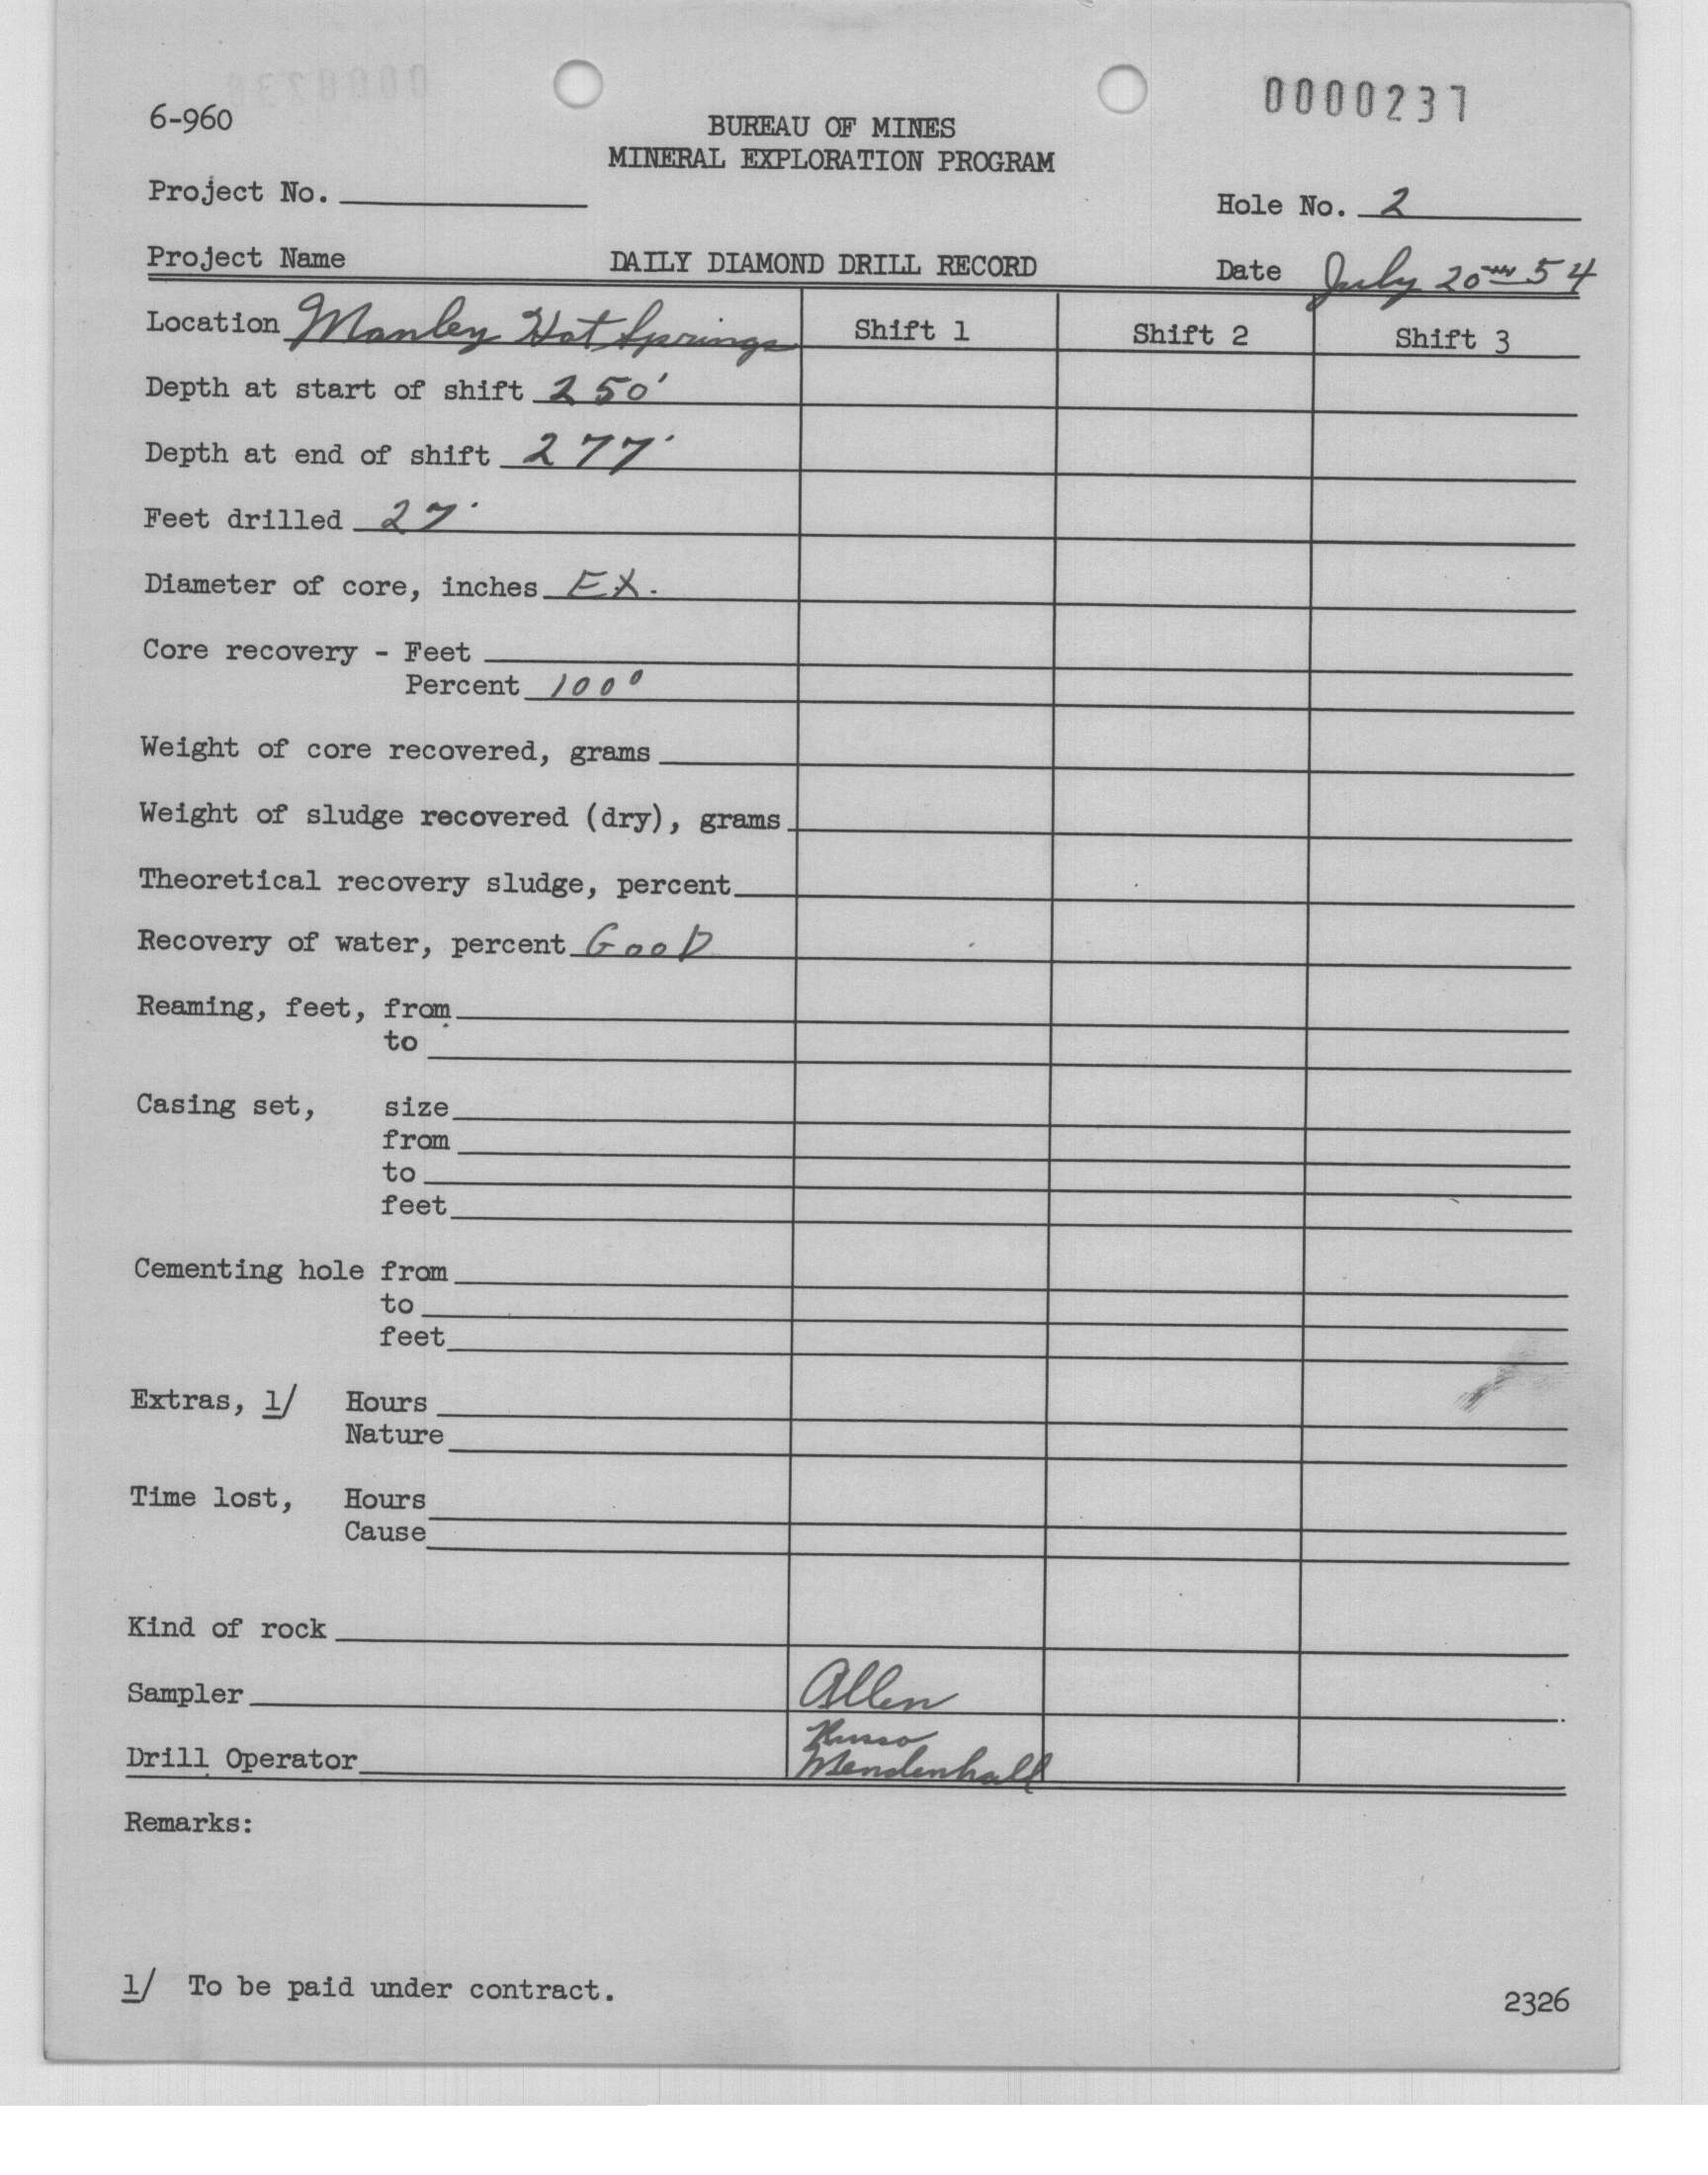 0000237
6-960
BUREAU OF MINES
MINERAL EXPLORATION PROGRAM
Project No.
Hole No. 2
Project Name DAILY DIAMOND DRILL RECORD Date July 20th 54
Location Manley Hot Springs Shift 1 Shift 2 Shift 3
Depth at start of shift 250'
Depth at end of shift 277'
Feet drilled 27'
Diameter of core, inches EX.
Core recovery - Feet
Percent 100°
Weight of core recovered, grams
Weight of sludge recovered (dry), grams
Theoretical recovery sludge, percent
Recovery of water, percent GooD
Reaming, feet, from
to
Casing set, size
from
to
feet
Cementing hole from
to
feet
Extras, 1/ Hours
Nature
Time lost, Hours
Cause
Kind of rock
Sampler Allen
Drill Operator
Mendenhall
Remarks:
1/ To be paid under contract.
2326